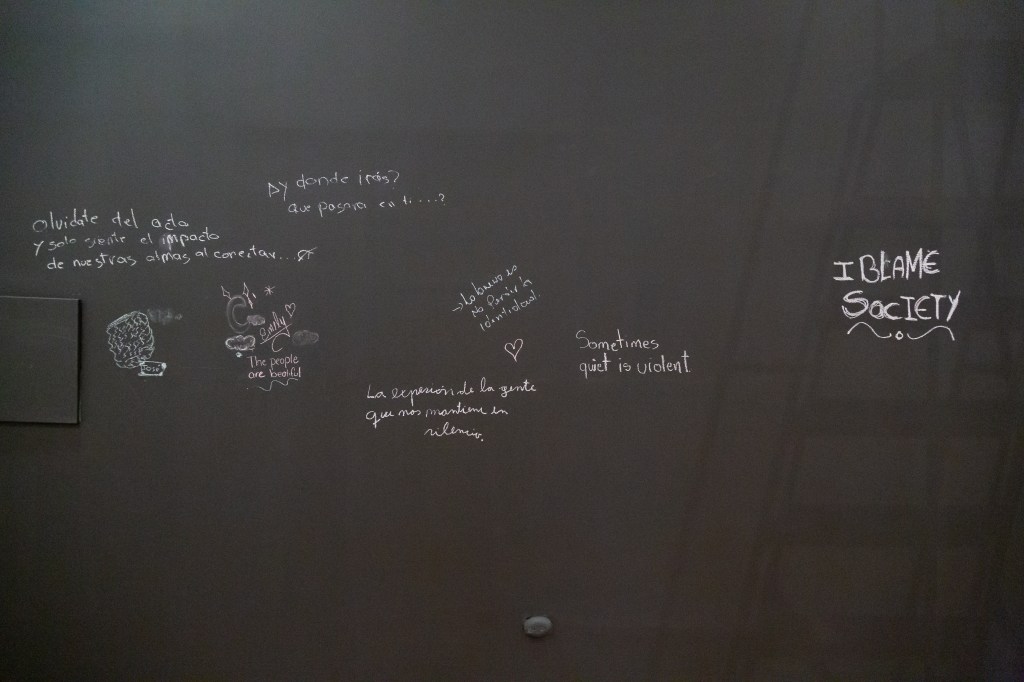 Olvidate del acto
y solo siente el impacto
de nuestras almas al conectar...
Dy donde irás?
que pasara en ti....?
José
C
Emily
The people
are beatiful
→ Lo bueno es
no perdir la
identidad.
La expresión de la gente
que nos mantiene en
silencio.
Sometimes
quiet is violent
I BLAME
SOCIETY